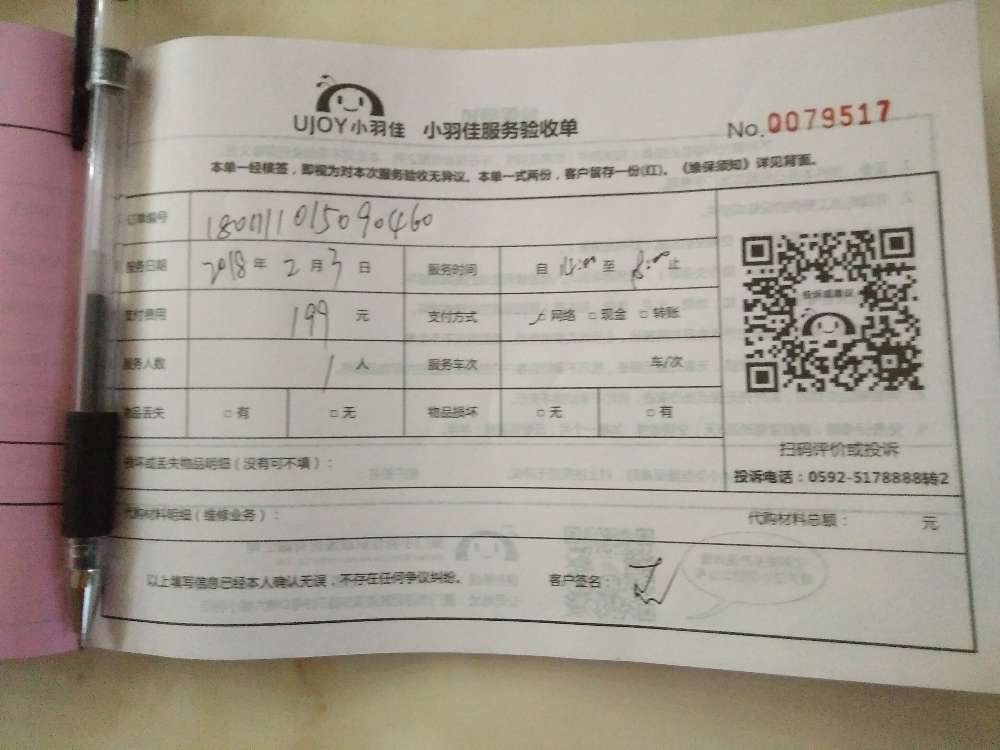 UJOY小羽佳 小羽佳服务验收单 No.0079517
本单一经核签，即视为对本次服务验收无异议。本单一式两份，客户留存一份(红)。《维保须知》详见背面。
订单编号
服务日期 2018年2月3日 服务时间 自 至 8:00 止
支付费用 199 元 支付方式 网络 □现金 □转账
服务人数 1人 服务车次 车/次
物品丢失 □有 □无 物品损坏 □无 □有
投诉或建议
扫码评价或投诉
投诉电话：0592-5178888转2
损坏或丢失物品明细（没有可不填）：
代购材料明细（维修业务）： 代购材料总额： 元
以上填写信息已经本人确认无误，不存在任何争议纠纷。 客户签名：